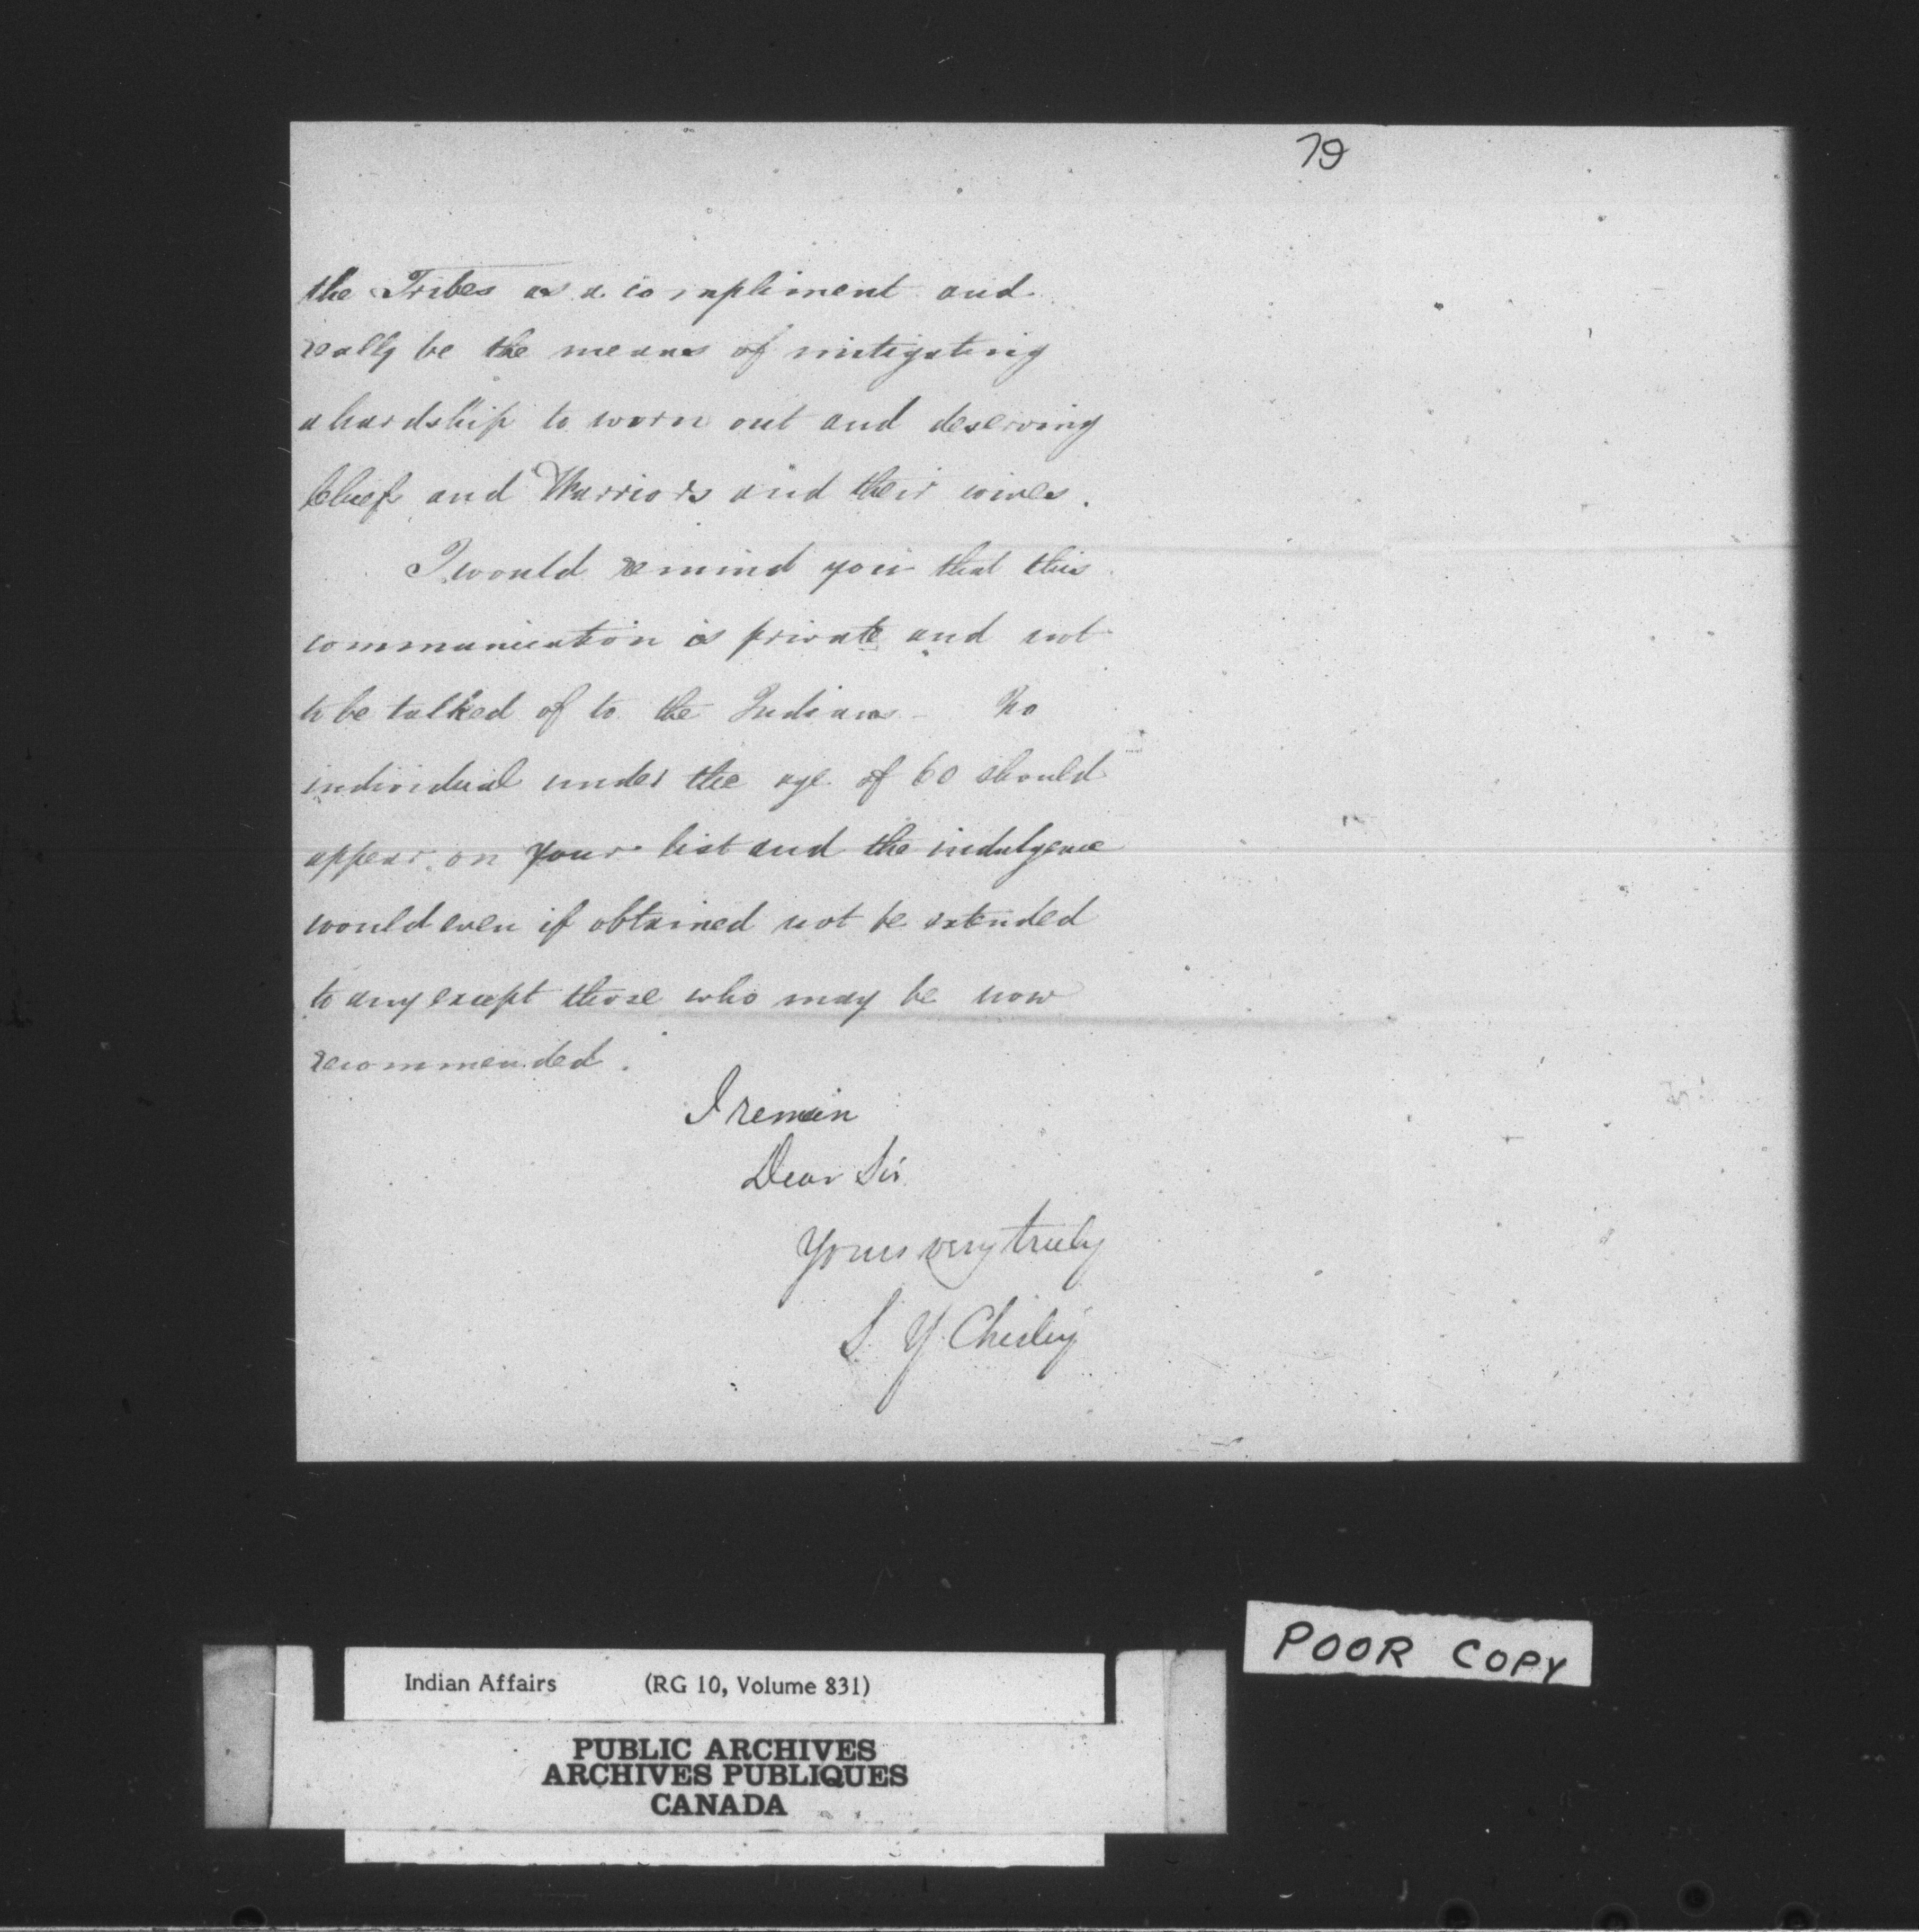 79
the Tribes as a compliment and
really be the means of mitigating
a hardship to worn out and deserving
Chiefs and Warriors and their wives.
I would remind you that this
communication is private and not
to be talked of to the Indians - No
individual under the age of 60 should
appear on your list and the indulgence
would even if obtained not be extended
to any except those who may be now
recommended.
I remain
Dear Sir
Yours very truly
S Y Chesley
POOR COPY
Indian Affairs (RG 10, Volume 831)
PUBLIC ARCHIVES
ARCHIVES PUBLIQUES
CANADA